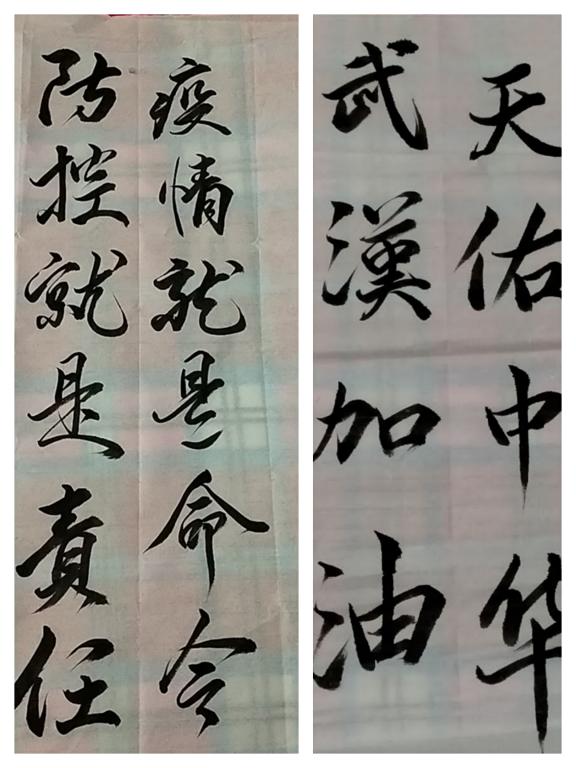 疫情就是命令
防控就是责任
天佑中华
武漢加油